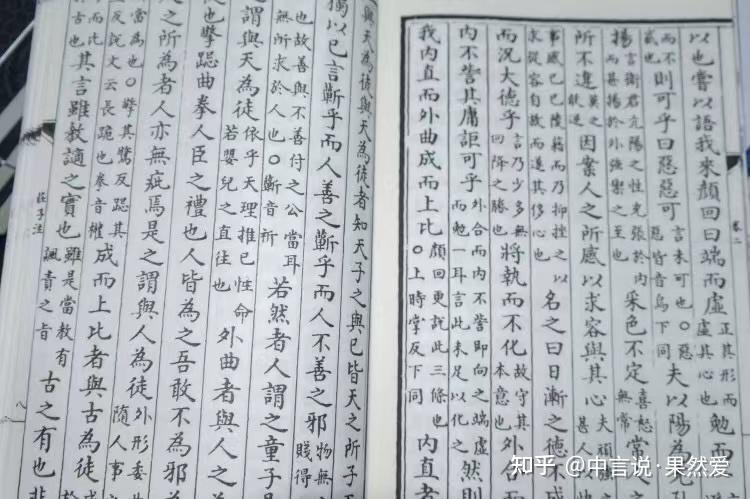 以也嘗以語我來顏回曰端而虛正其形而虛其心也勉而
而不則可乎曰惡惡可言未可也〇惡惡皆音烏下同夫以陽為
揚言衛君亢陽之性充張於內而甚揚於外強禦之至也采色不定喜怒無常常人之
所不違莫之敢逆因案人之所感以求容與其心夫頑甚人
事感己己陵藉而乃抑挫之以求從容自放而遂其侈心也名之曰日漸之德不成
而況大德乎言乃少多無回降之勝也將執而不化故守其本意也外合而
內不訾其庸詎可乎外合而內不訾即向之端虛而勉一耳言此未足以化之然則
我內直而外曲成而上比顏回更說此三條也〇上時掌反下同內直者
卷二
與天為徒與天為徒者知天子之與己皆天之所子
獨以己言蘄乎而人善之蘄乎而人不善之邪物無賤得
也故善與不善付之公當耳無所求於人也〇蘄音祈若然者人謂之童子是
謂與天為徒依乎天理推己性命若嬰兒之直往也外曲者與人之為
徒也擎跽曲拳人臣之禮也人皆為之吾敢不為邪
人之所為者人亦無疵焉是之謂與人為徒外形委曲隨人事之
當為也〇擎其驚反跽其上反說文云長跪也拳音權成而上比者與古為徒成
而比於古也其言雖教謫之實也雖是當教有諷責之旨古之有也非
莊子注
八
知乎 @中言说·果然爱